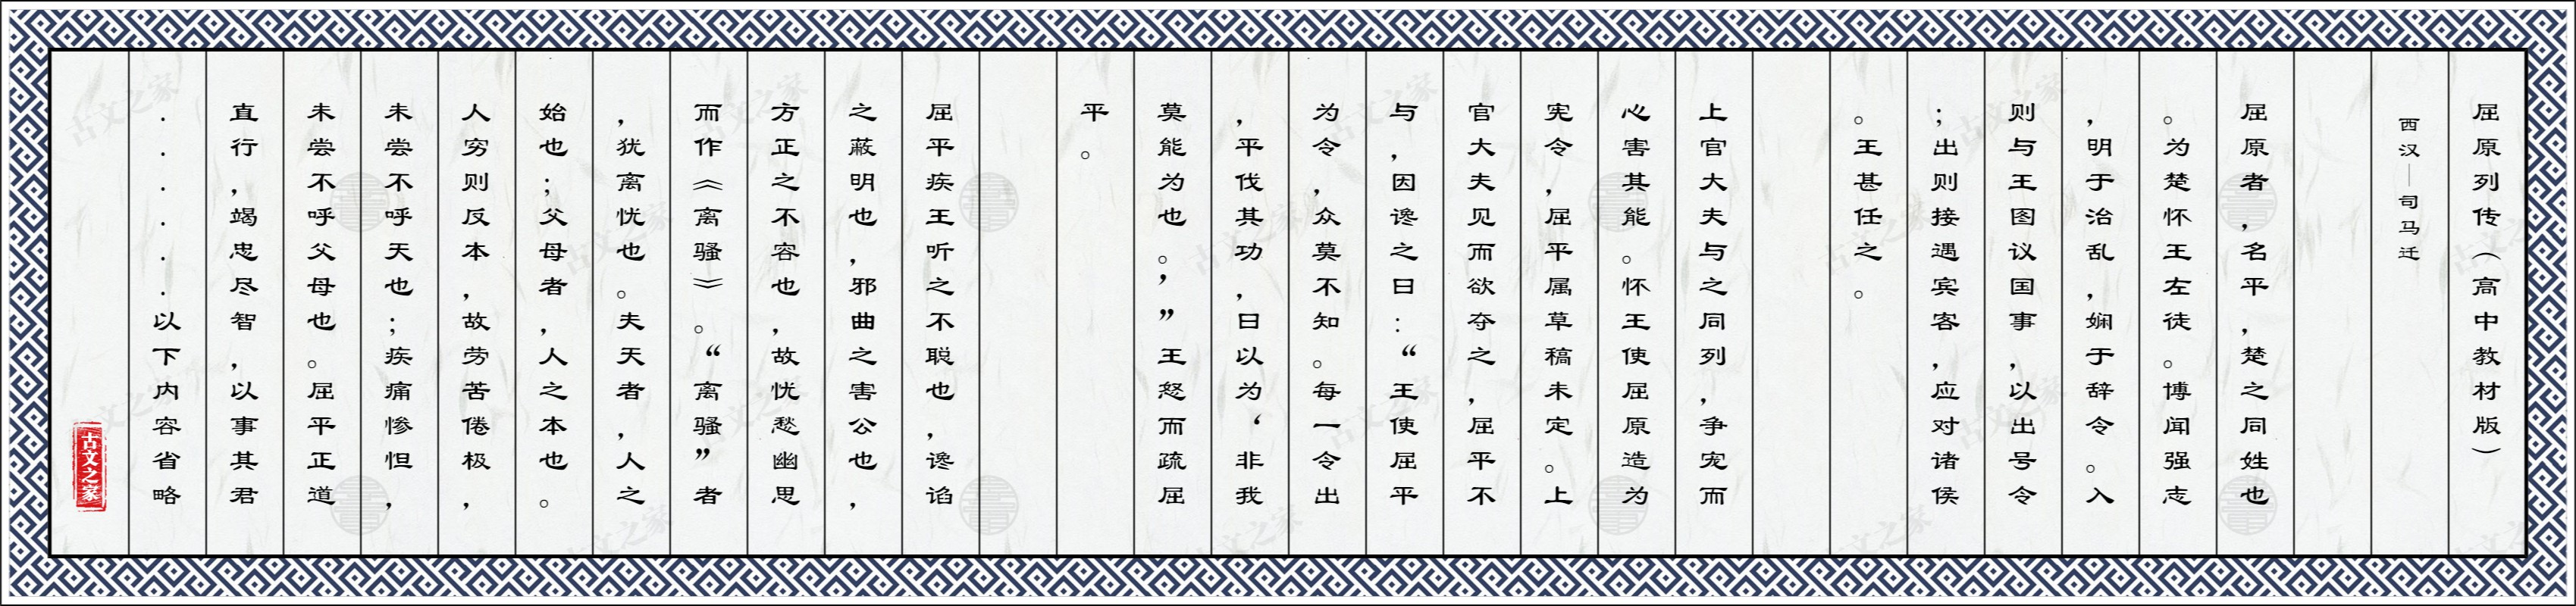 屈原列传（高中教材版）
西汉—司马迁
屈原者，名平，楚之同姓也
。为楚怀王左徒。博闻强志
，明于治乱，娴于辞令。入
则与王图议国事，以出号令
；出则接遇宾客，应对诸侯
。王甚任之。
上官大夫与之同列，争宠而
心害其能。怀王使屈原造为
宪令，屈平属草稿未定。上
官大夫见而欲夺之，屈平不
与，因谗之曰：“王使屈平
为令，众莫不知。每一令出
，平伐其功，曰以为‘非我
莫能为也。’”王怒而疏屈
平。
屈平疾王听之不聪也，谗谄
之蔽明也，邪曲之害公也，
方正之不容也，故忧愁幽思
而作《离骚》。“离骚”者
，犹离忧也。夫天者，人之
始也；父母者，人之本也。
人穷则反本，故劳苦倦极，
未尝不呼天也；疾痛惨怛，
未尝不呼父母也。屈平正道
直行，竭忠尽智，以事其君
......以下内容省略
古文之家